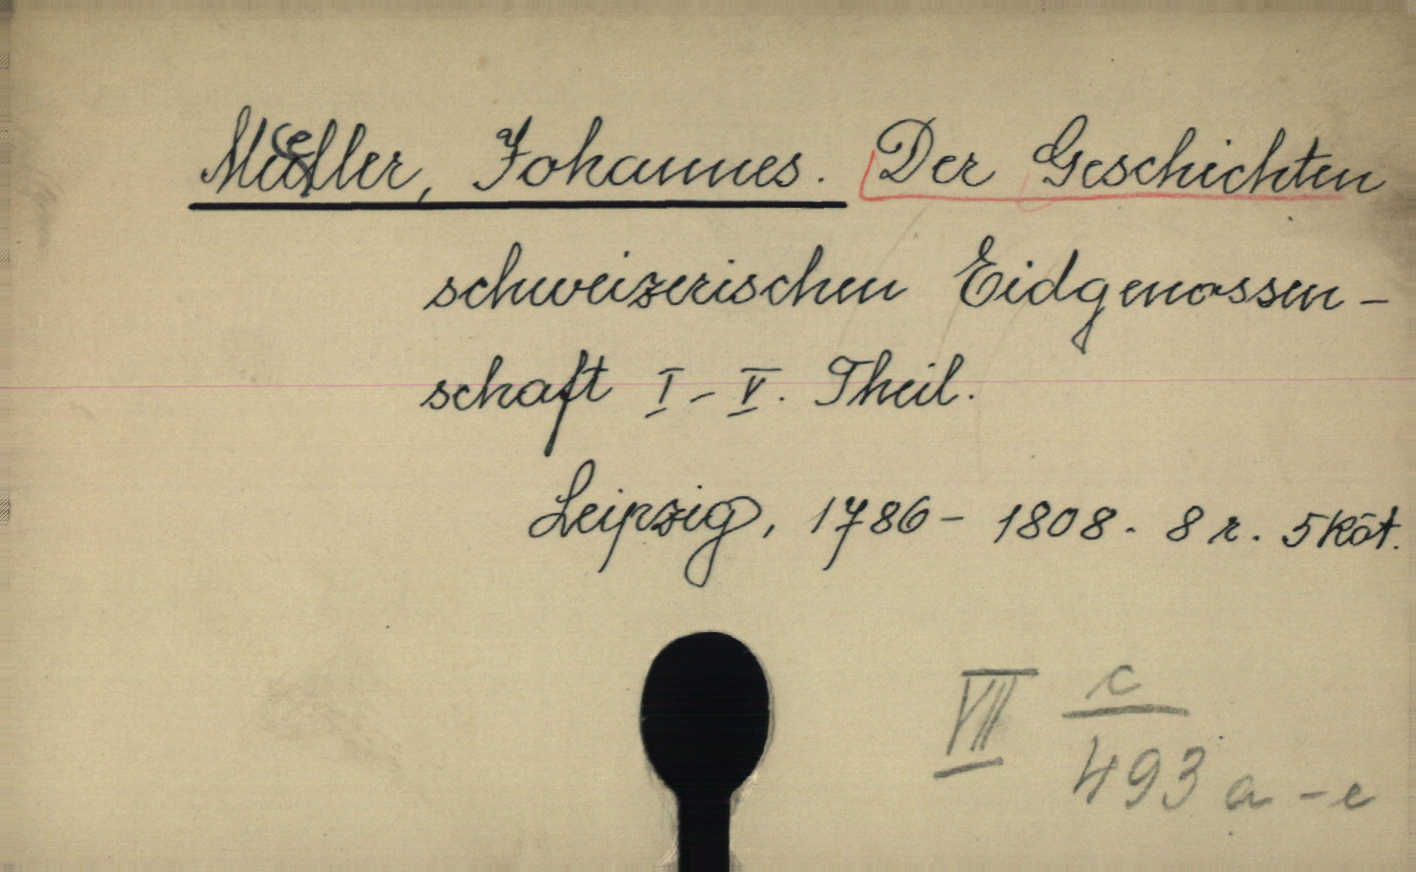 Müller, Johannes. Der Geschichten
schweizerischen Eidgenossen-
schaft I-V. Theil.
Leipzig, 1786-1808. 8 r. 5 köt.
VII c
493 a-e